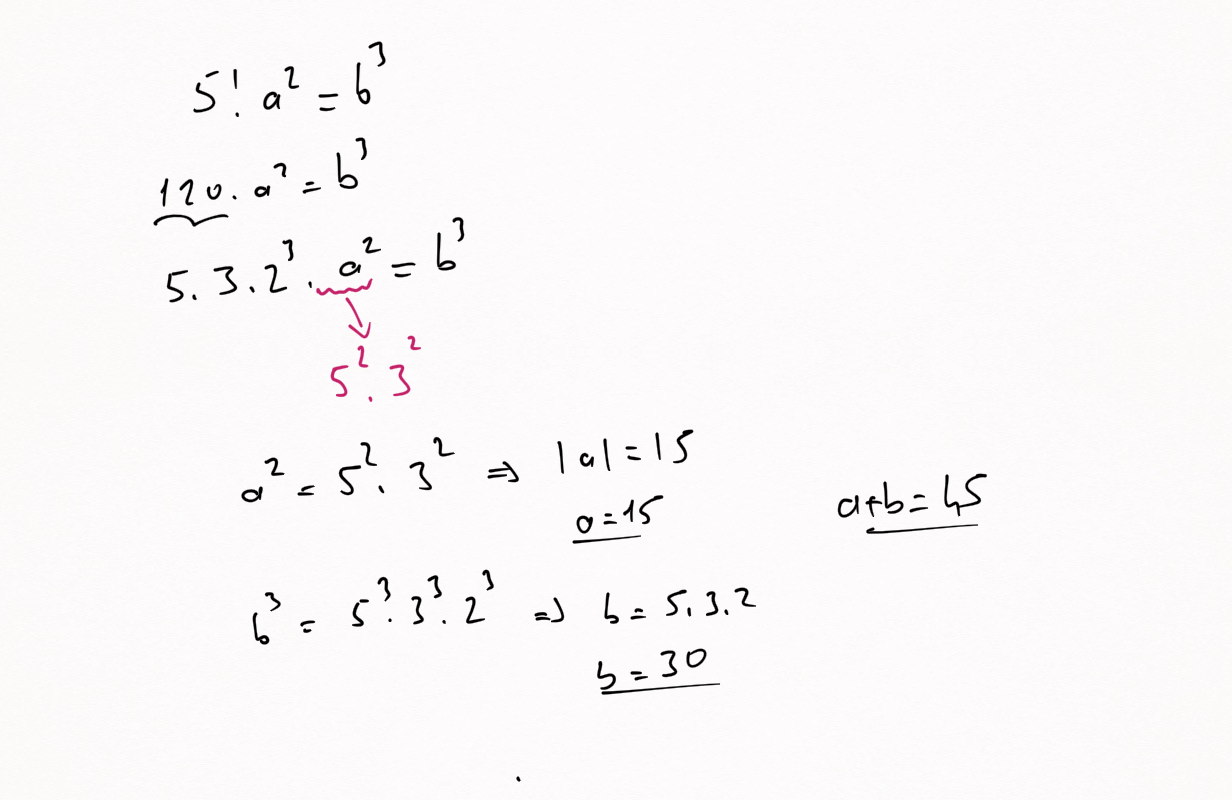 5! a² = b³
120 . a² = b³
5 . 3 . 2³ . a² = b³
5² . 3²
a² = 5² . 3² ⇒ |a| = 15
a = 15
a+b = 45
b³ = 5³ . 3³ . 2³ ⇒ b = 5 . 3 . 2
b = 30